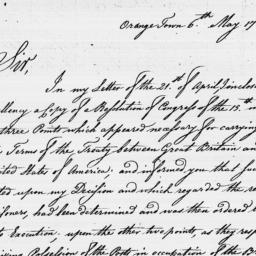 Orange Town 6th May 17
Sir,
In my Letter of the 21st of April, I inclose
llency a Copy of a Resolution of Congress of the 15th in
three Points which appeared necessary for carrying
e Terms of the Treaty between Great Britain an
ited States of America, and informed you that
ted upon my Decision and which regarded the re
soners, had been determined and was then ordered
to Execution. upon the other two points, as they resp
iving Possession of the Posts in occupation of the B